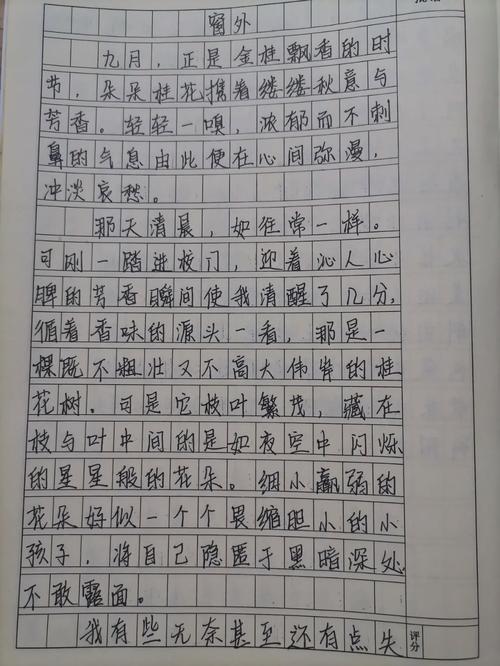 窗外
九月，正是金桂飘香的时
节，朵朵桂花携着缕缕秋意与
芳香。轻轻一嗅，浓郁而不刺
鼻的气息由此便在心间弥漫，
冲淡哀愁。
那天清晨，如往常一样。
可刚一踏进校门，迎着沁人心
脾的芳香瞬间使我清醒了几分，
循着香味的源头一看，那是一
棵既不粗壮又不高大伟岸的桂
花树。可是它枝叶繁茂，藏在
枝与叶中间的是如夜空中闪烁
的星星般的花朵。细小羸弱的
花朵好似一个个畏缩胆小的小
孩子，将自己隐匿于黑暗深处
不敢露面。
我有些无奈甚至还有点失
评分